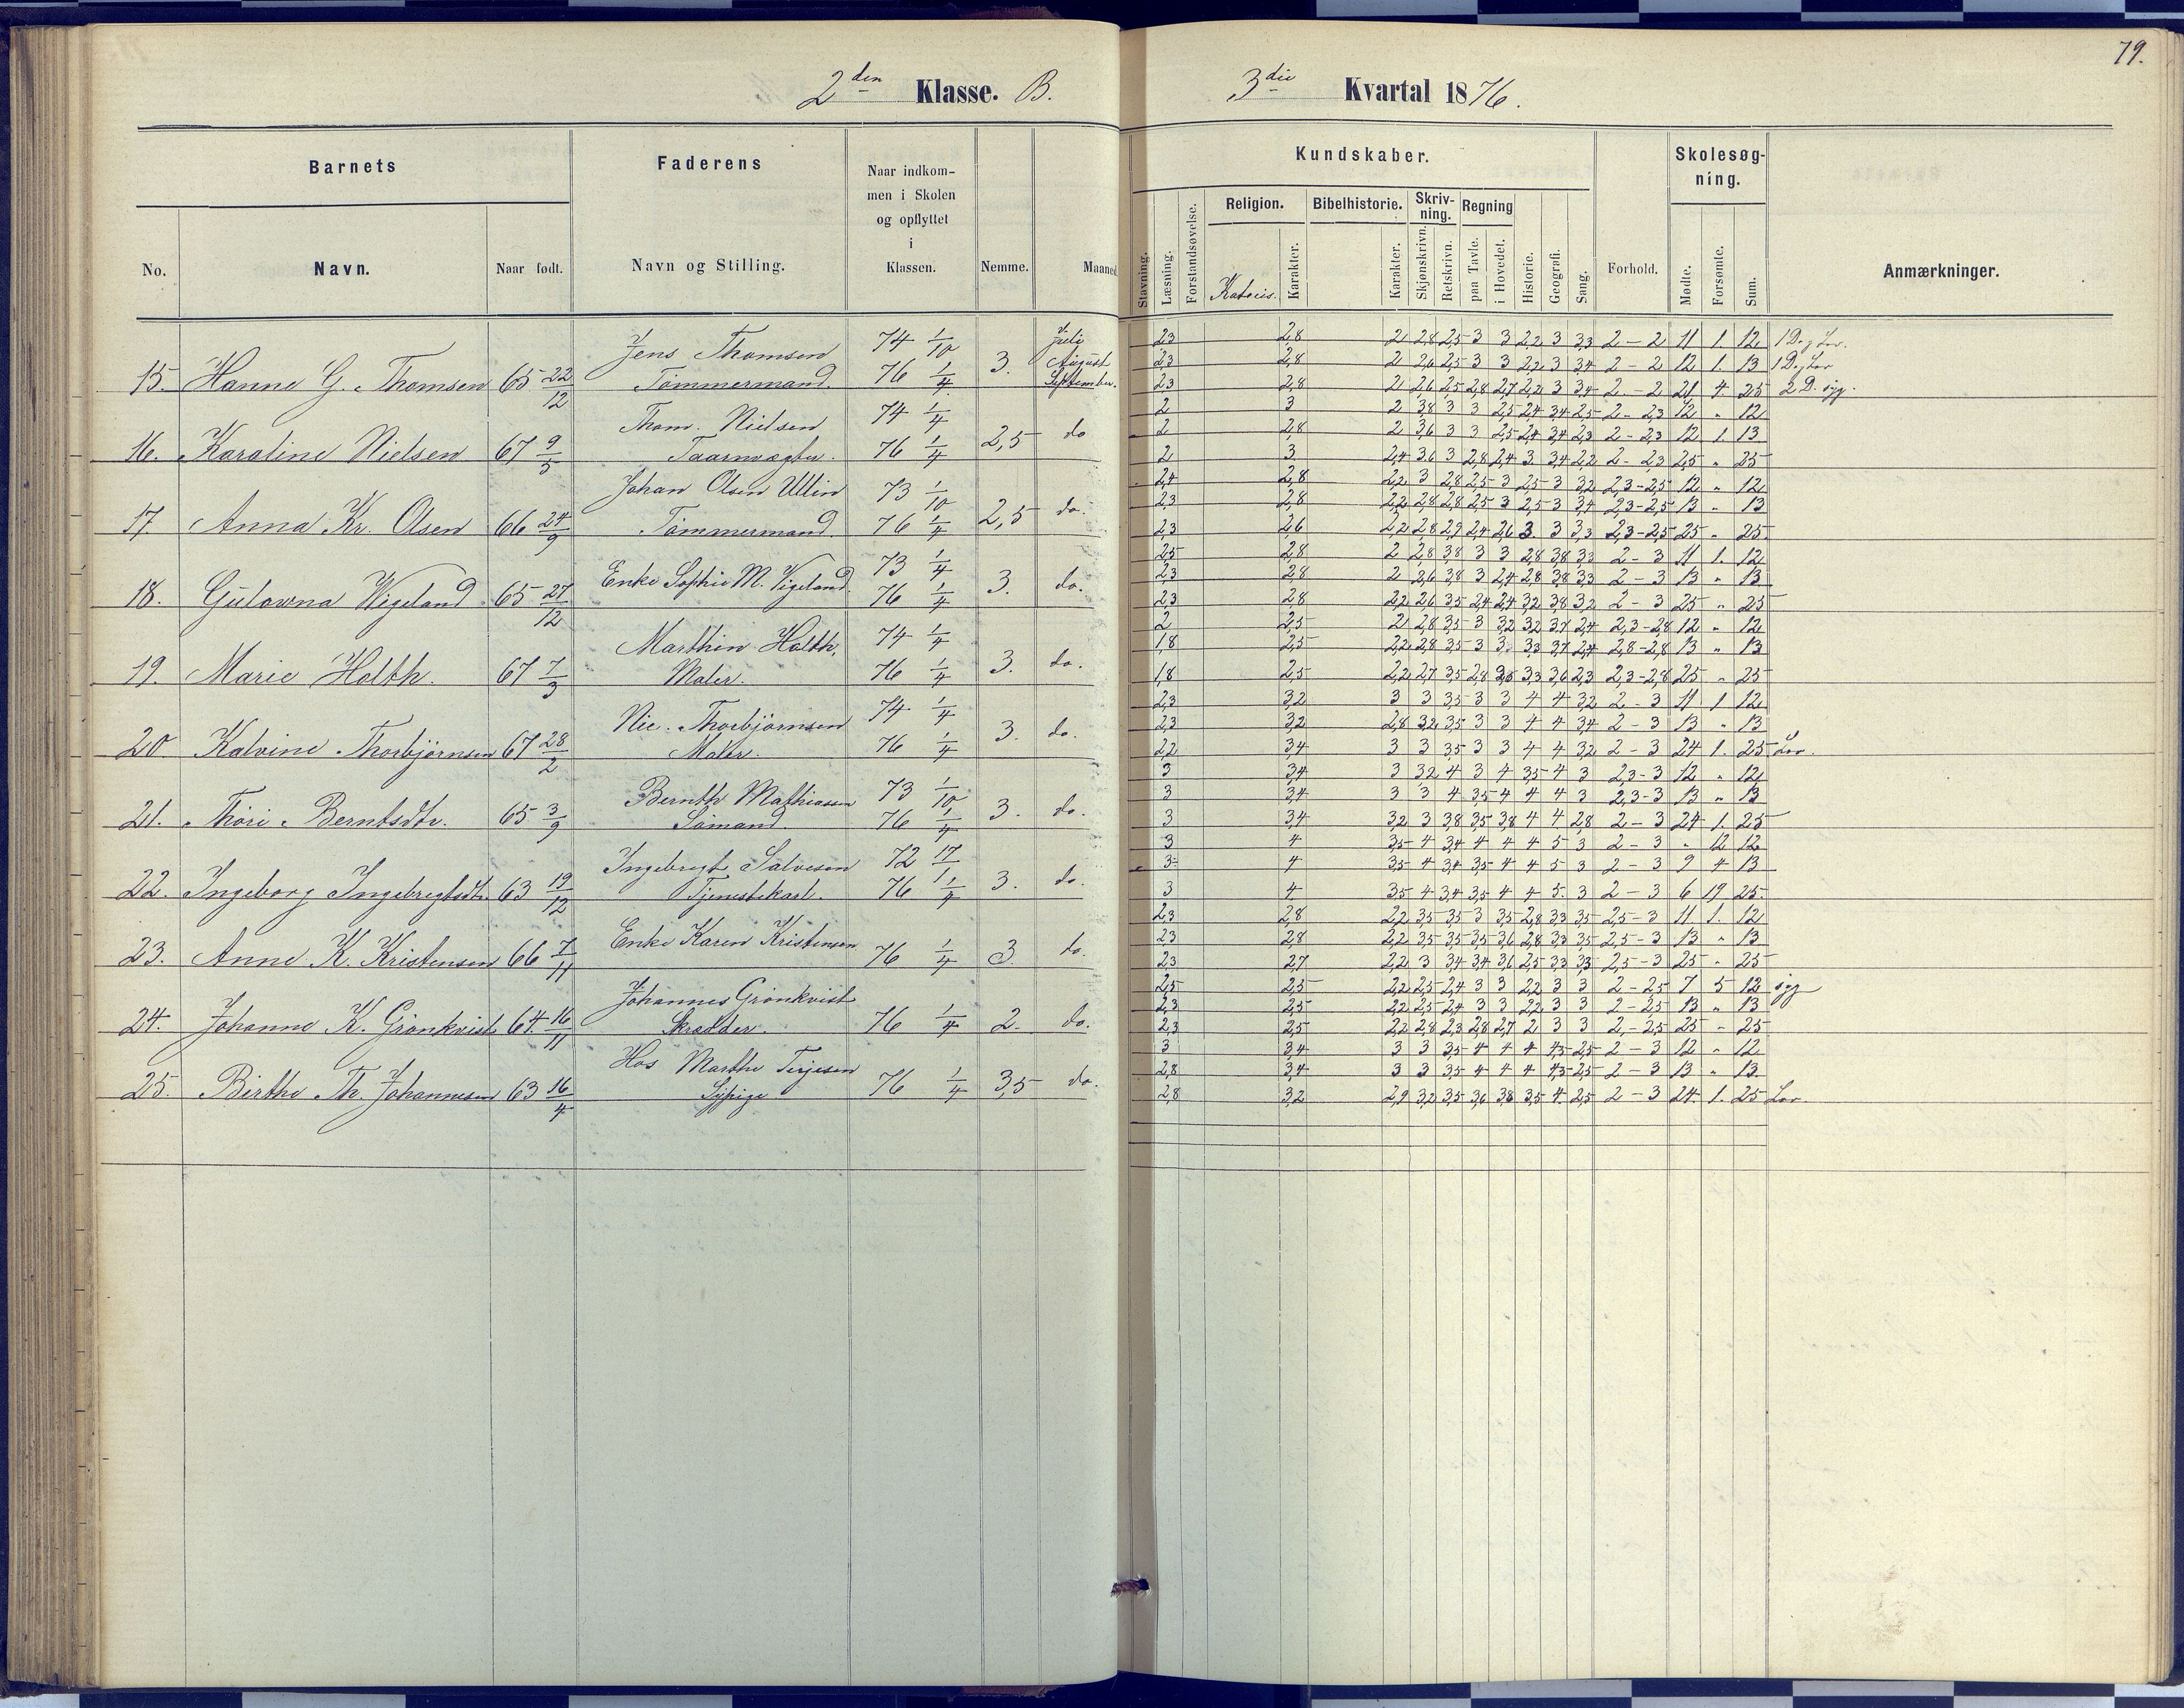 79.
2den Klasse. B.
3die Kvartal 1876.
Barnets
Faderens
Naar indkommen i Skolen og opflyttet i Klassen.
Nemme.
Maaned
Kundskaber.
Forhold.
Skolesøgning.
Anmærkninger.
No.
Navn.
Naar født.
Navn og Stilling.
Stavning.
Læsning.
Forstandsøvelse.
Religion.
Katecis.
Karakter.
Bibelhistorie.
Karakter.
Skrivning.
Skjønskrivn.
Retskrivn.
Regning
paa Tavle.
i Hovedet.
Historie.
Geografi.
Sang.
Mødte.
Forsømte.
Sum.
15. Hanne G. Thomsen 65 22/12 Jens Thomsen Tømmermand. 74 1/10 76 1/4 3. Juli August September.
2,3 2,8 2 2,8 2,5 3 3 2,2 3 3,3 2-2 11 1. 12 1 D. g Lov.
2,3 2,8 2 2,6 2,5 3 3 2,2 3 3,4 2-2 12 1. 13 1 D. g Lov
2,3 2,8 2 2,6 2,5 2,8 2,7 2,2 3 3,4 2-2 21 4. 25 2 D. syg.
16. Karoline Nielsen 67 9/5 Thom. Nielsen Taarnvægter. 74 1/4 76 1/4 2,5 do
2 3 2 3,8 3 3 2,5 2,4 3,4 2,5 2-2,3 12 " 12
2 2,8 2 3,6 3 3 2,5 2,4 3,4 2,3 2-2,3 12 1. 13
2 3 2,4 3,6 3 2,8 2,4 3. 3,4 2,2 2-2,3 25 " 25
17. Anna Kr. Olsen 66 24/9 Johan Olsen Ullin Tømmermand. 73 1/10 76 1/4 2,5 do.
2,4 2,8 2,2 3 2,8 2,5 3 2,5 3 3,2 2,3-2,5 12 " 12
2,3 2,8 2,2 2,8 2,8 2,5 3 2,5 3 3,4 2,3-2,5 13 " 13
2,3 2,6 2,2 2,8 2,9 2,4 2,6 3. 3 3,3 2,3-2,5 25 " 25.
18. Gulowna Wigeland 65 27/12 Enke Sophie M. Vigeland. 73 1/4 76 1/4 3. do.
2,5 2,8 2 2,8 3,8 3 3 2,8 3,8 3,3 2-3 11 1. 12
2,3 2,8 2 2,6 3,8 3 2,4 2,8 3,8 3,3 2-3 13 " 13
2,3 2,8 2,2 2,6 3,5 2,4 2,4 3,2 3,8 3,2 2-3 25 " 25
19. Marie Holth. 67 7/3 Marthin Holth, Maler. 74 1/4 76 1/4 3. do.
2 2,5 2 2,8 3,5 3 3,2 3,2 3,7 2,4 2,3-2,8 12 " 12
1,8 2,5 2,2 2,8 3,5 3 3, 3,3 3,7 2,4 2,8-2,8 13 " 13
1,8 2,5 2,2 2,7 3,5 2,8 3,3 3,6 2,3 2,3-2,8 25 " 25
20 Kalvine Thorbjørnsen 67 28/2 Nic. Thorbjørnsen Maler. 74 1/4 76 1/4 3. do.
2,3 3,2 3 3 3,5 3 3 4 4 3,2 2-3 11 1 12
2,3 3,2 2,8 3,2 3,5 3 3 4 4 3,4 2-3 13 " 13
2,2 3,4 3 3 3,5 3 3 4 4 3,2 2-3 24 1. 25 Lov.
21. Thori Berntsdtr. 65 3/9 Bernth Mathiassen Sømand. 73 1/10 76 1/4 3. do.
3 3,4 3 3,2 4 3 4 3,5 4 3 2,3-3 12 " 12
3 3,4 3 3 4 3,5 4 4 4 3 2,3-3 13 " 13
3 3,4 3,2 3 3,8 3,5 3,8 4 4 2,8 2-3 24 1. 25
22. Ingeborg Ingebregtsdtr. 63 19/12 Ingebregt Salvesen Tjenestekarl. 72 17/1 76 1/4 3. do.
3 4 3,5 4 3,4 4 4 4 5 3 2-3 " 12 12
3 4 3,5 4 3,4 3,5 4 4 5 3 2-3 9 4 13
3 4. 3,5 4 3,4 3,5 4 4 5. 3 2-3 6 19 25.
23. Anne K. Kristensen 66 7/11 Enke Karen Kristensen 76 1/4 3. do.
2,3 2,8 2,2 3,5 3,5 3 3,5 2,8 3,3 3,5 2,5-3 11 1. 12
2,3 2,8 2,2 3,5 3,5 3,5 3,6 2,8 3,3 3,5 2,5-3 13 " 13
2,3 2,7 2,2 3 3,4 3,4 3,6 2,5 3,3 3,3 2,5-3 25 " 25
24. Johanne K. Grønkvist 64 16/11 Johannes Grønkvist Skrædder. 76 1/4 2. do.
2,5 2,5 2,2 2,5 2,4 3 3 2,2 3 3 2-2,5 7 5 12 syg
2,3 2,5 2,2 2,5 2,4 3 3 2,2 3 3 2-2,5 13 " 13
2,3 2,5 2,2 2,8 2,3 2,8 2,7 2 3 3 2,-2,5 25 " 25
25. Birthe Th. Johannesen 63 16/4 Hos Marthe Terjesen Sypige 76 1/4 3,5 do.
3 3,4 3 3 3,5 4 4 4 4,5 2,5 2-3 12 " 12
2,8 3,4 3 3 3,5 4 4 4 4,5 2,5 2-3 13 " 13
2,8 3,2 2,9 3,2 3,5 3,6 3,8 3,5 4. 2,5 2-3 24. 1. 25 Lov.